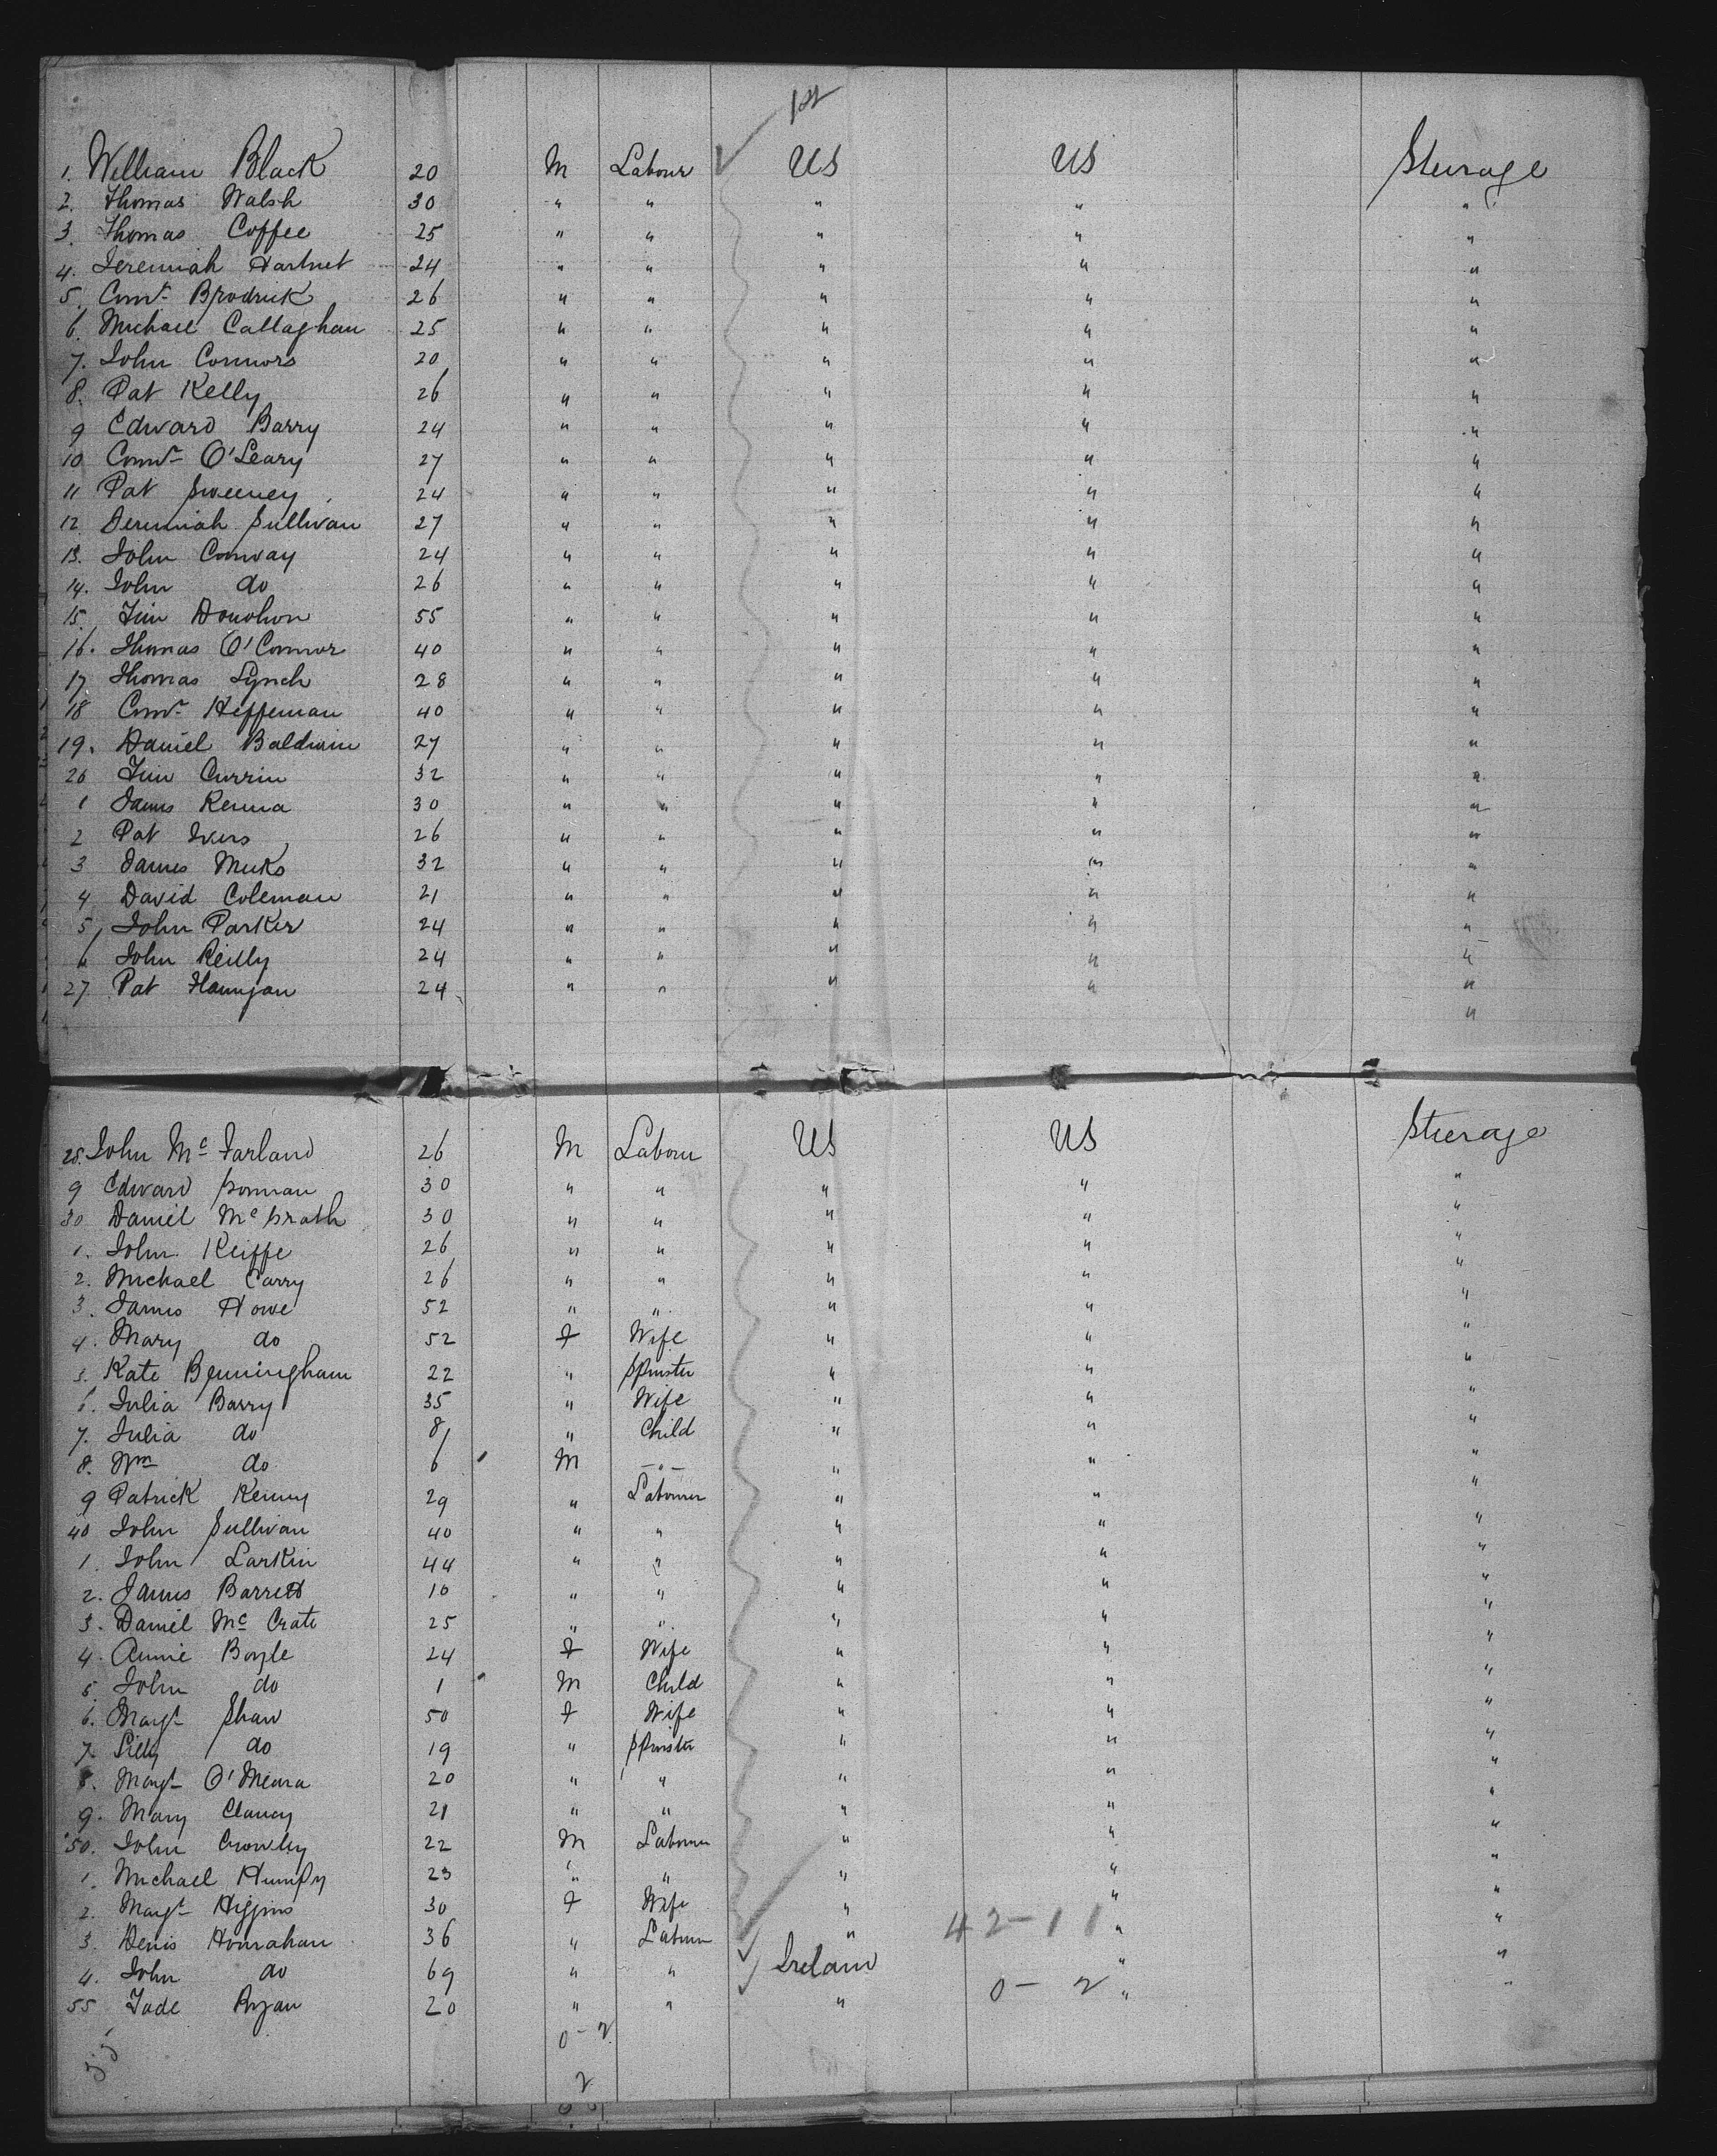 1st
1. William Black 20 M Labour US US Sturage
2. Thomas Walsh 30 " " " " "
3. Thomas Coffee 25 " " " " "
4. Jeremiah Hartnet 24 " " " " "
5. Corns. Brodrick 26 " " " " "
6. Michael Callaghan 25 " " " " "
7. John Connors 20 " " " " "
8. Pat Kelly 26 " " " " "
9 Edward Barry 24 " " " " "
10 O'Leary 27 " " " " "
11 Pat Sweeney 24 " " " " "
12 Jeremiah Sullivan 27 " " " " "
13. John Conway 24 " " " " "
14. John do 26 " " " " "
15. Tim Donohon 55 " " " " "
16. Thomas O'Connor 40 " " " " "
17 Thomas Lynch 28 " " " " "
18 Heffernan 40 " " " " "
19. Daniel Baldwin 27 " " " " "
20 Tim Currin 32 " " " " "
1 James Kenna 30 " " " " "
2 Pat Ivers 26 " " " " "
3 James Meeks 32 " " " " "
4 David Coleman 21 " " " " "
5 John Parker 24 " " " " "
6 John Reilly 24 " " " " "
27. Pat 24 " " " " "
"
28. John Mc Farland 26 M Labour US US Sturage
9 Edward Gorman 30 " " " " "
30 Daniel Mc Grath 30 " " " " "
1. John Keiffe 26 " " " " "
2. Michael Carry 26 " " " " "
3. James Howe 52 " " " " "
4. Mary do 52 F Wife " " "
5. Kate Bermingham 22 " Spinster " " "
6. Julia Barry 35 " Wife " " "
7. Julia do 8 " Child " " "
8. Wm do 6 M -"- " " "
9 Patrick Kenny 29 " Labourer " " "
40 John Sullivan 40 " " " " "
1. John Larkin 44 " " " " "
2. James Barrett 10 " " " " "
3. Daniel Mc Crate 25 " " " " "
4. Annie Boyle 24 F Wife " " "
5. John do 1 M Child " " "
6. Margt Shaw 50 F Wife " " "
7. do 19 " Spinster " " "
8. Margt O'Meara 20 " " " " "
9. Mary Clancy 21 " " " " "
50. John Crowley 22 M Labourer " " "
1. Michael 23 " " " " "
2. Margt Higgins 30 F Wife " " "
3. Denis Hourahan 36 " Labour " 42-11 " "
4. John do 69 " " Ireland " "
55 Ryan 20 " " " 0-2 "
55 0-2
2